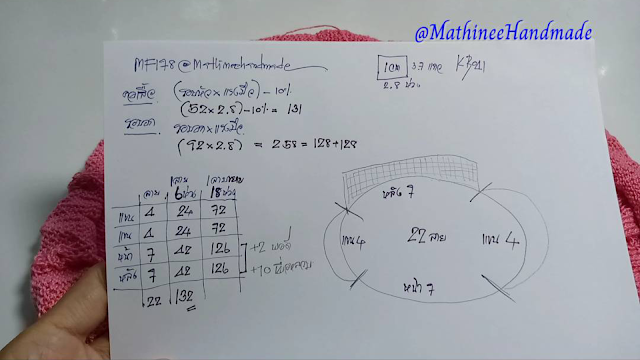 @MathineeHandmade
MF178@Mathineehandmade
1cm 3.7 แถว
2.8 ช่อง
คอเสื้อ (รอบหัว x แรงมือ) - 10%
(52 x 2.8) - 10% = 131
รอบอก รอบอก x แรงมือ
(92 x 2.8) = 258 = 128 + 128
ลาย 1 ลาย 6 ช่อง 18 ช่อง
แขน 4 24 72
แขน 4 24 72
หน้า 7 42 126 +2
หลัง 7 42 126 +10
22 132
หลัง 7
แขน 4 22 ลาย แขน 4
หน้า 7